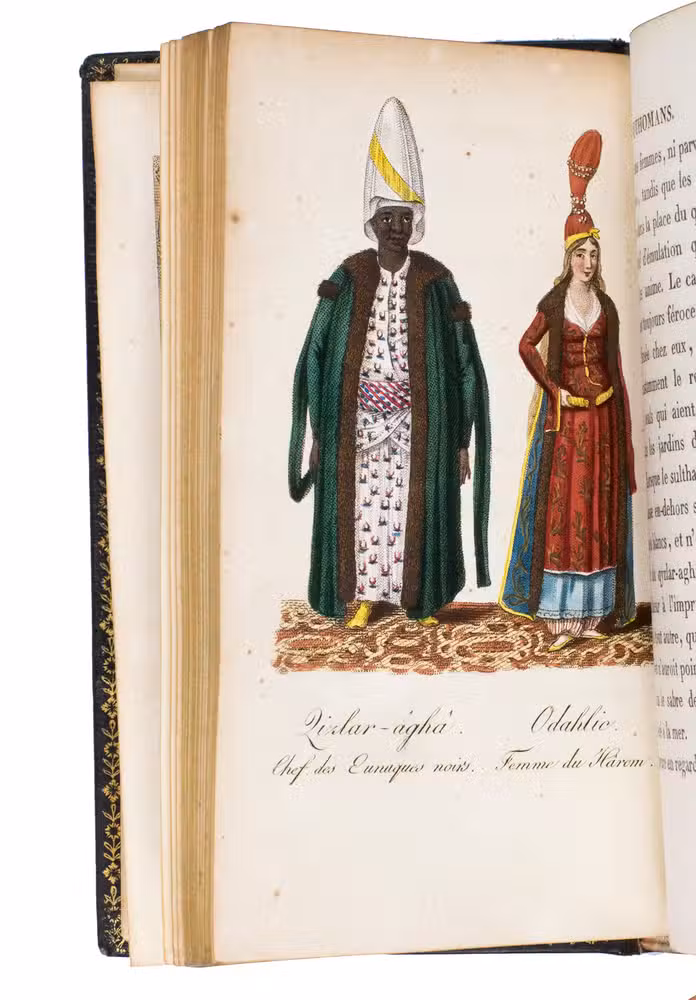 Qizlar-âghâ.
Chef des Eunuques noirs.
Odahlic.
Femme du Hârem.
THOMANS.
femmes, ni parv
tandis que les
la place du q
d'émulation q
anime. Le ca
toujours féroce
chez eux,
le re
qui aient
les jardins d
le sultha
en-dehors s
et n'
à l'impr
autre, qu
poin
le sabre de
à la mer.
en regard